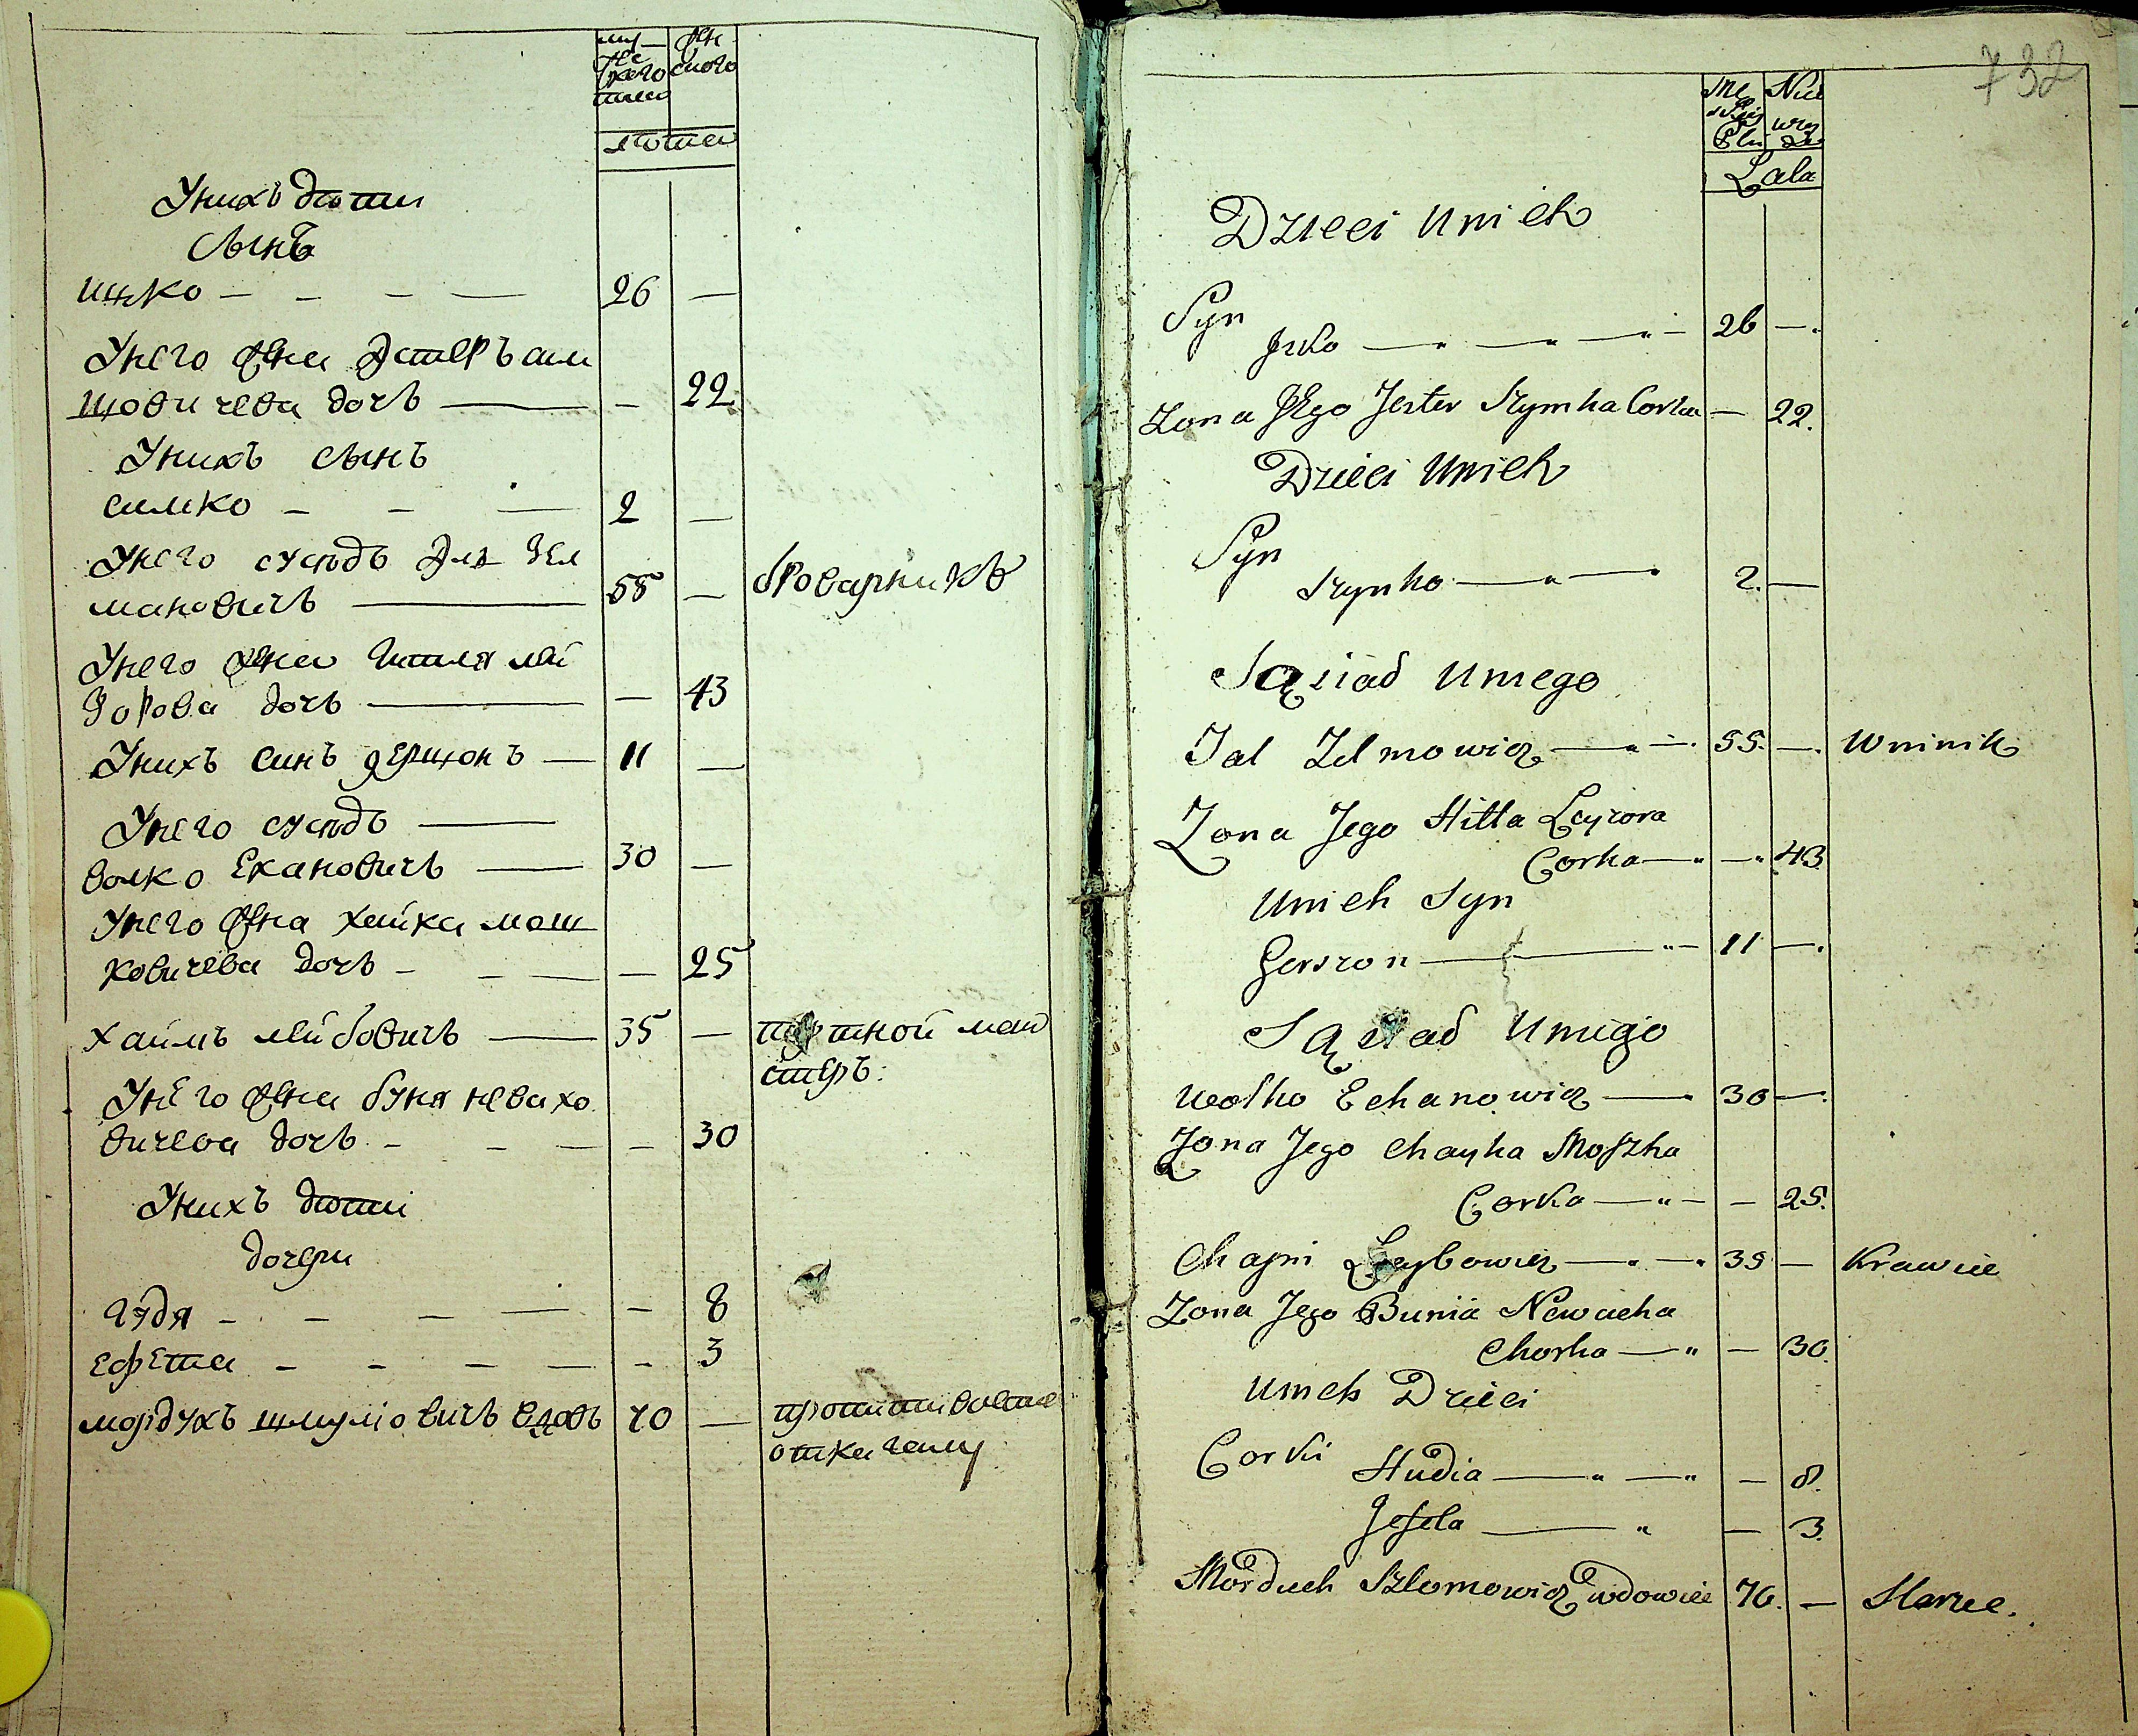 мужескаго
женскаго
лѣта
У нихъ дѣти
сынъ
ицко — 26 —
У него жена эстеръ сим
шовичева дочь — 22.
У нихъ сынъ
симко — 2 —
У него сусѣдъ Эля Зел
мановичъ — 55 — броварникъ
У него жена гитля лей
зорова дочь — 43
У нихъ синъ гершонъ — 11 —
У него сусѣдъ —
волко Ехановичъ — 30 —
У него жена хайка мош
ковичева дочь — 25
хаимъ лейбовичъ — 35 — портной май
стеръ:
У него жена буня невахо
вичева дочь — 30
У нихъ дѣти
дочери
гудя — 8
ефета — 3
мордухъ шмуліовичъ вдовъ 70 —
732
Męskiey Płci
Lata
Dzieci U nich
Syn
Icko — 26 —.
Zona Jego Jester Szymka Corka — 22.
Dzieci U nich
Syn
Szymko — 2. —
Sąsiad U niego
Jal Zelmowicz — 55. —. Winnik
Zona Jego Hitla Leyzora
Corka — 43
U nich Syn
Gerszon — 11 —.
Sąsiad U niego
Wolko Echanowicz — 30 —.
Zona Jego Chayka Moszka
Corka — 25.
Chaym Leybowicz — 35 — Krawiec
Zona Jego Bunia Newacha
Chorka — 30.
U nich Dzieci
Corki Hudia — 8.
Jefeta — 3.
Morduch Szlomowicz wdowiec 70. — Starzec.